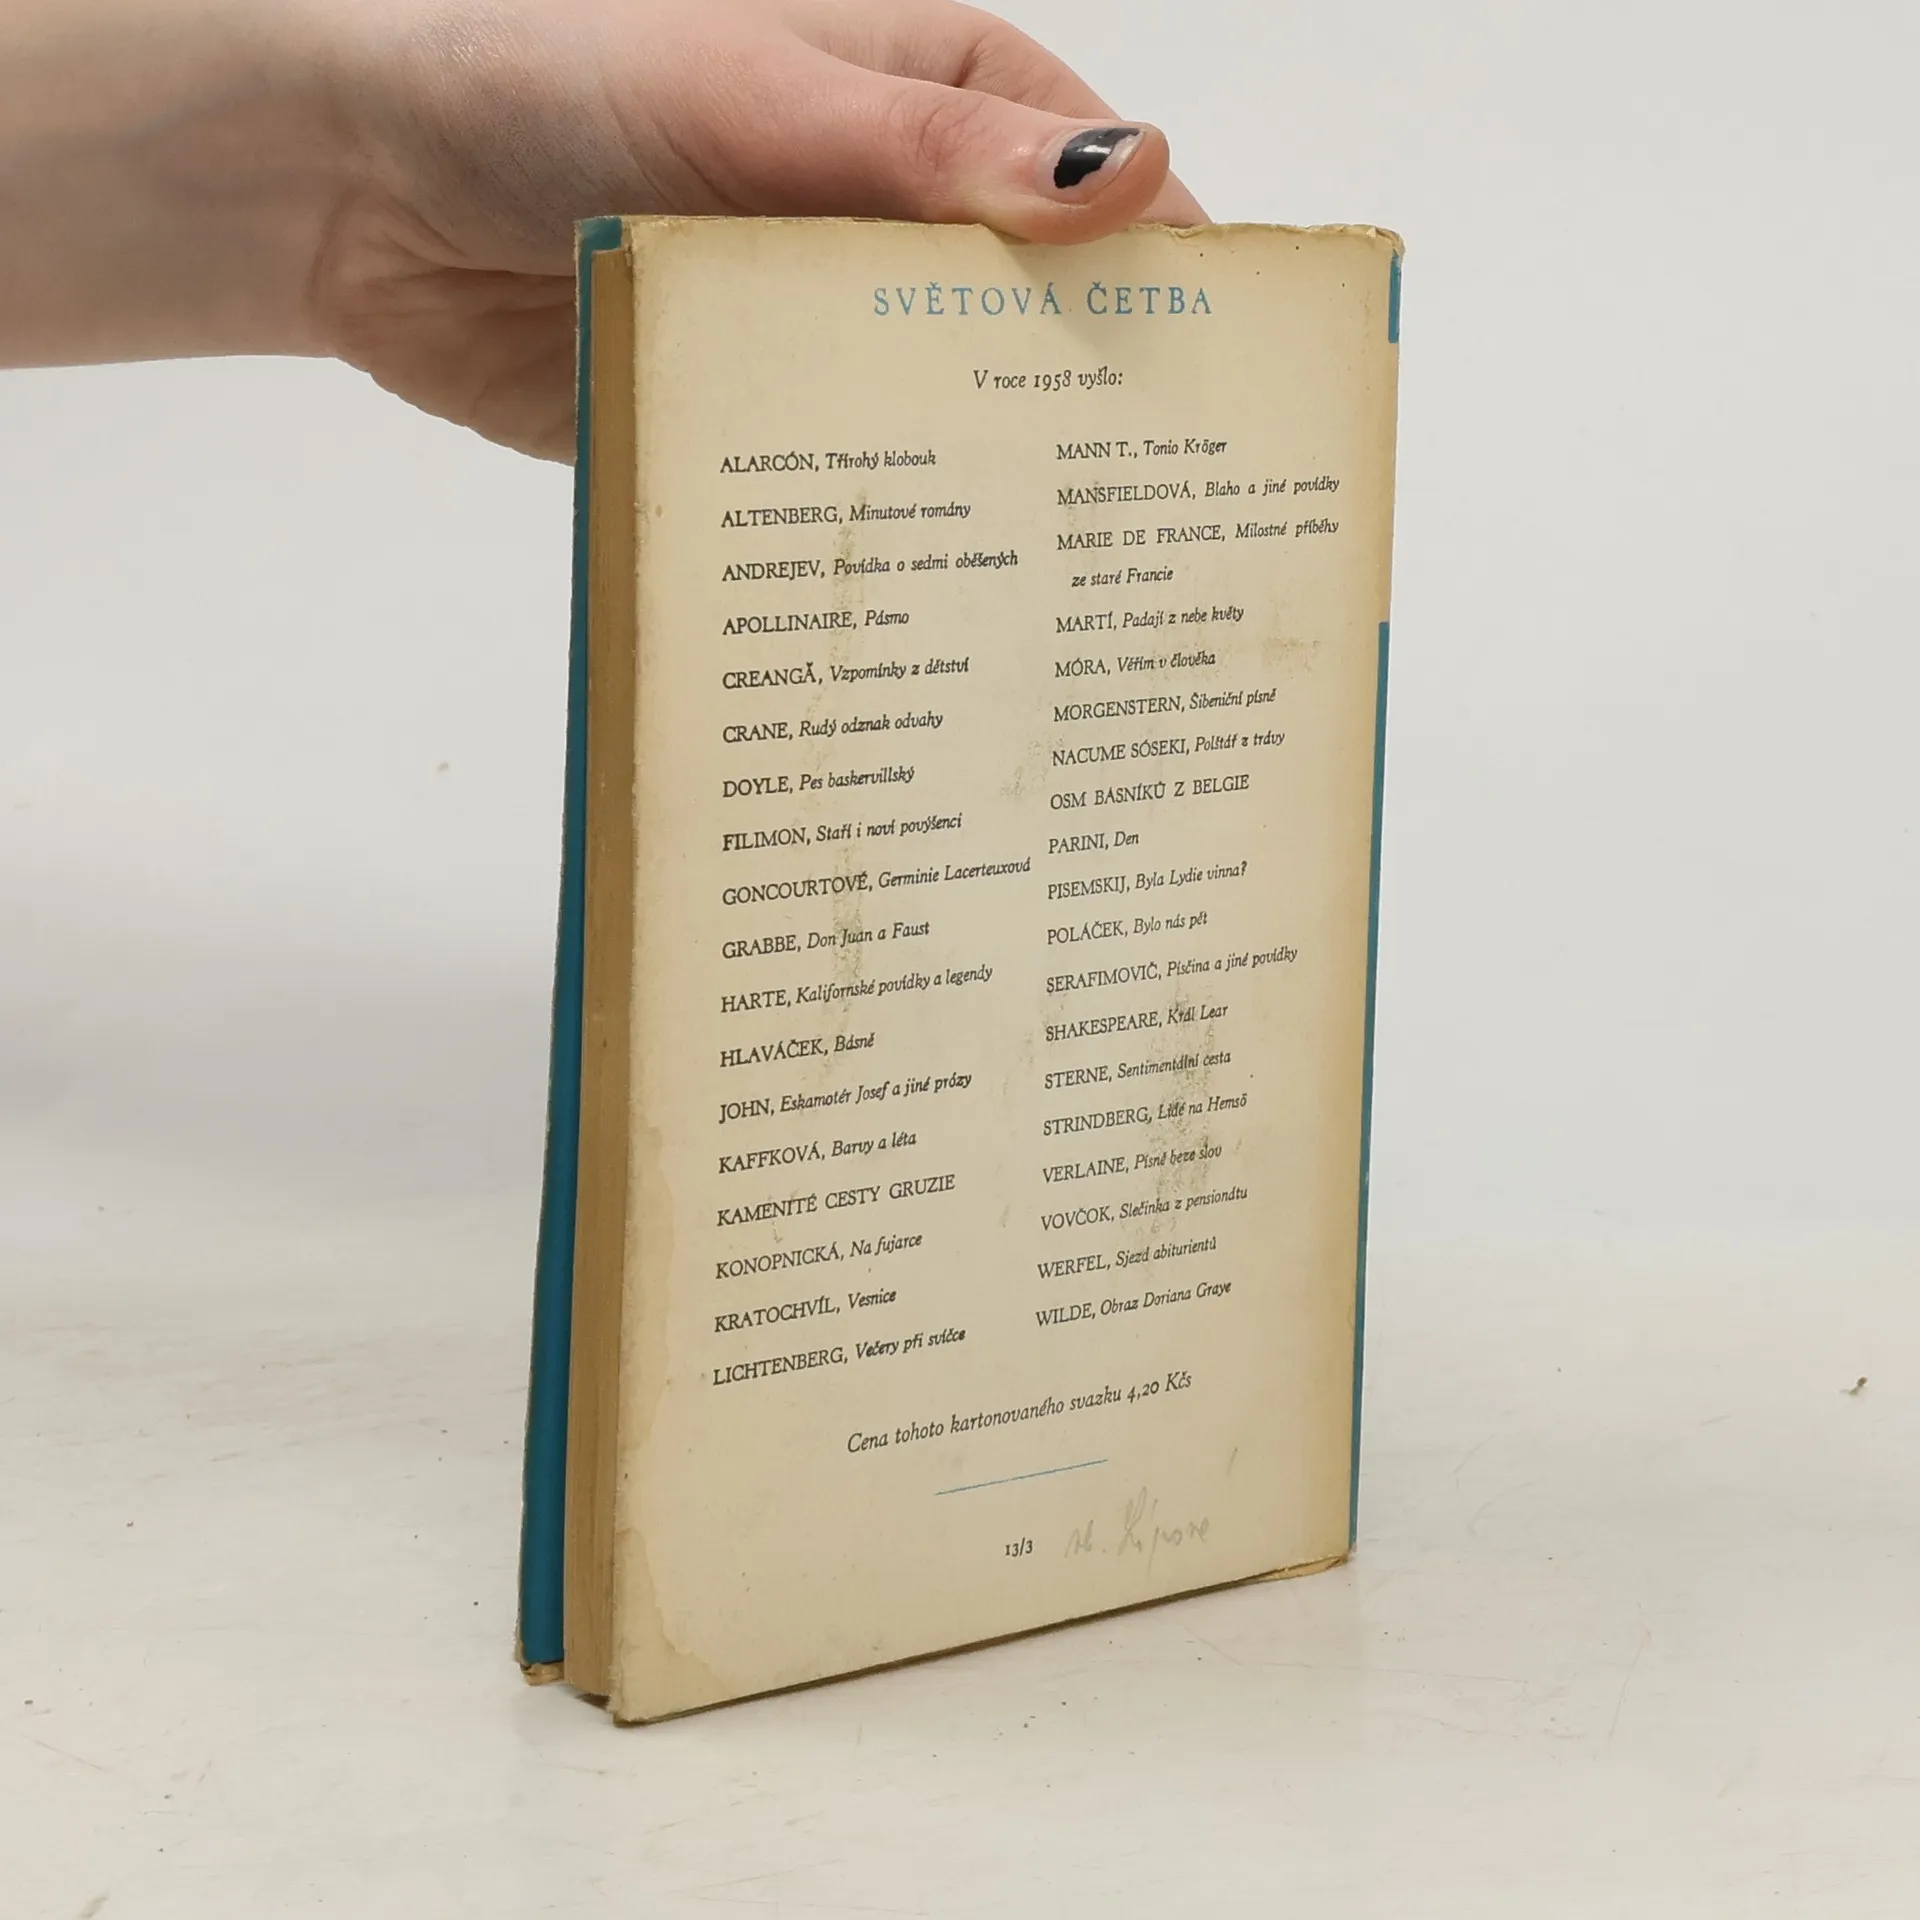 SVĚTOVÁ ČETBA
V roce 1958 vyšlo:
ALARCÓN, Třírohý klobouk
ALTENBERG, Minutové romány
ANDREJEV, Povídka o sedmi oběšených
APOLLINAIRE, Pásmo
CREANGĂ, Vzpomínky z dětství
CRANE, Rudý odznak odvahy
DOYLE, Pes baskervillský
FILIMON, Staří i noví povýšenci
GONCOURTOVÉ, Germinie Lacerteuxová
GRABBE, Don Juan a Faust
HARTE, Kalifornské povídky a legendy
HLAVÁČEK, Básně
JOHN, Eskamotér Josef a jiné prózy
KAFFKOVÁ, Barvy a léta
KAMENITÉ CESTY GRUZIE
KONOPNICKÁ, Na fujarce
KRATOCHVÍL, Vesnice
LICHTENBERG, Večery při svíčce
MANN T., Tonio Kröger
MANSFIELDOVÁ, Blaho a jiné povídky
MARIE DE FRANCE, Milostné příběhy
ze staré Francie
MARTÍ, Padají z nebe květy
MÓRA, Věřím v člověka
MORGENSTERN, Šibeniční písně
NACUME SÓSEKI, Polštář z trávy
OSM BÁSNÍKŮ Z BELGIE
PARINI, Den
PISEMSKIJ, Byla Lydie vinna?
POLÁČEK, Bylo nás pět
SERAFIMOVIČ, Písčina a jiné povídky
SHAKESPEARE, Král Lear
STERNE, Sentimentální cesta
STRINDBERG, Lidé na Hemsö
VERLAINE, Písně beze slov
VOVČOK, Slečinka z pensionátu
WERFEL, Sjezd abiturientů
WILDE, Obraz Doriana Graye
Cena tohoto kartonovaného svazku 4,20 Kčs
13/3